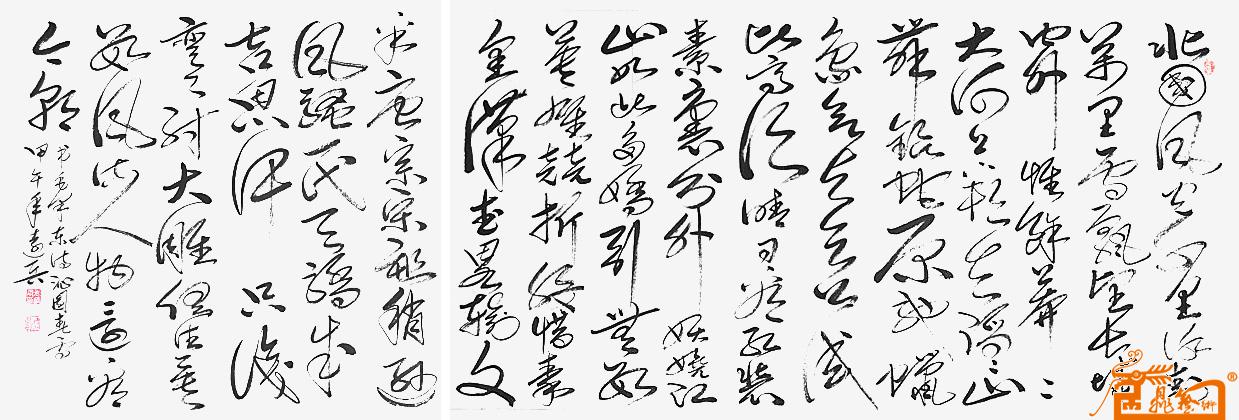 北國风光千里冰封
萬里雪飘望长城
内外惟馀莽〻
大河上下顿失滔〻山
舞银蛇原驰蜡
象欲与天公试
比高须晴日看红装
素裹分外妖娆江
山如此多娇引無数
英雄竞折腰惜秦
皇漢武略输文
采唐宗宋祖稍逊
风骚一代天骄成
吉思汗只识
弯弓射大雕俱往矣
数风流人物还看
今朝
书毛泽东诗沁园春雪
甲午年